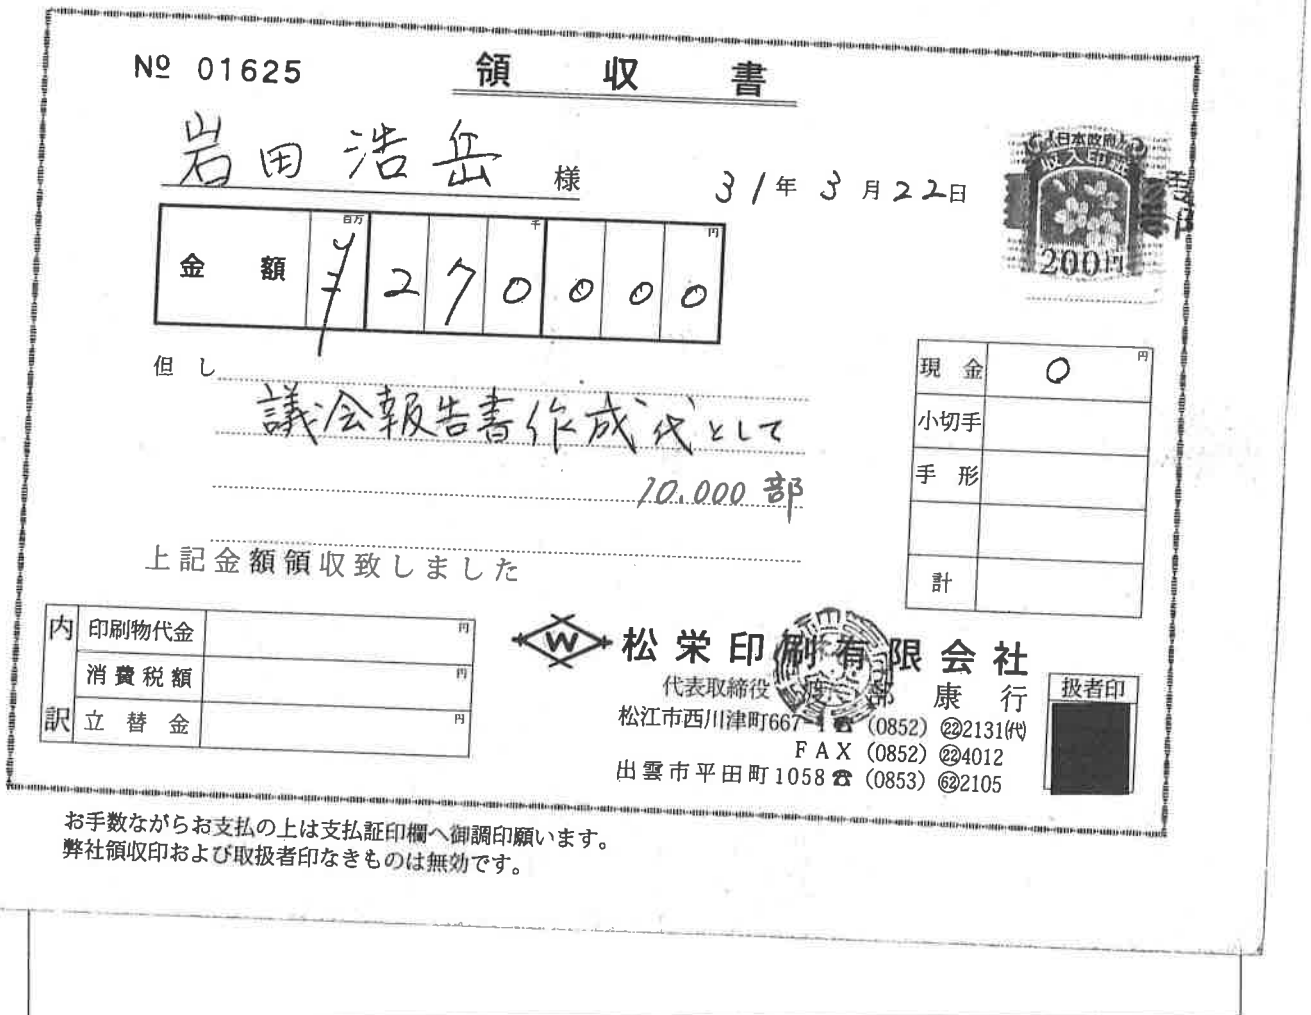 № 01625
領収書
岩田浩岳 様
31年3月22日
日本政府
収入印紙
200円
金額 百万 千 円
¥270000
但し
議会報告書作成代として
10.000部
上記金額領収致しました
現金 0 円
小切手
手形
計
内訳
印刷物代金 円
消費税額 円
立替金 円
W 松栄印刷有限会社
代表取締役 渡部康行
松江市西川津町667-1☎(0852)㉒2131㈹
FAX(0852)㉒4012
出雲市平田町1058☎(0853)622105
扱者印
お手数ながらお支払の上は支払証印欄へ御調印願います。
弊社領収印および取扱者印なきものは無効です。